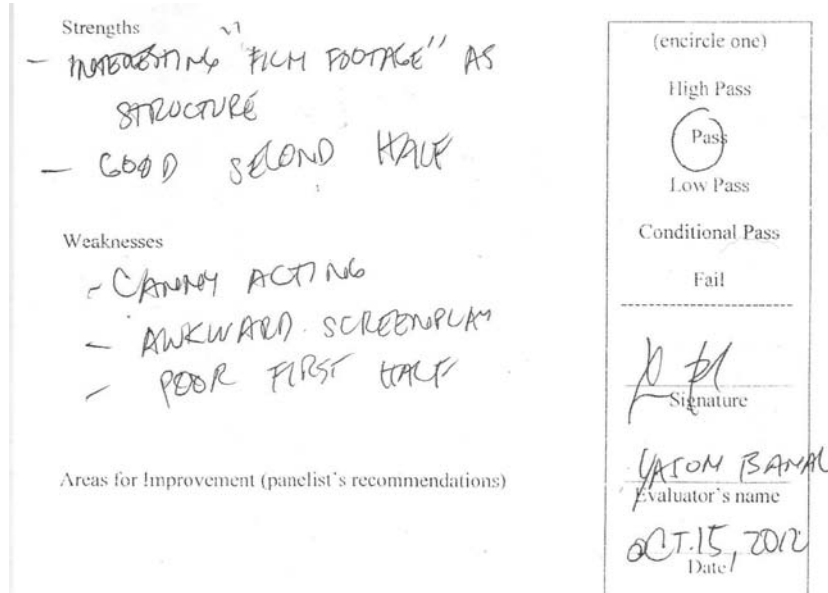 Strengths
- INTERESTING "FILM FOOTAGE" AS
STRUCTURE
- GOOD SECOND HALF
Weaknesses
- CANNY ACTING
- AWKWARD SCREENPLAY
- POOR FIRST HALF
Areas for Improvement (panelist's recommendations)
(encircle one)
High Pass
Pass
Low Pass
Conditional Pass
Fail
Signature
YASON BANAL
Evaluator's name
OCT. 15, 2012
Date